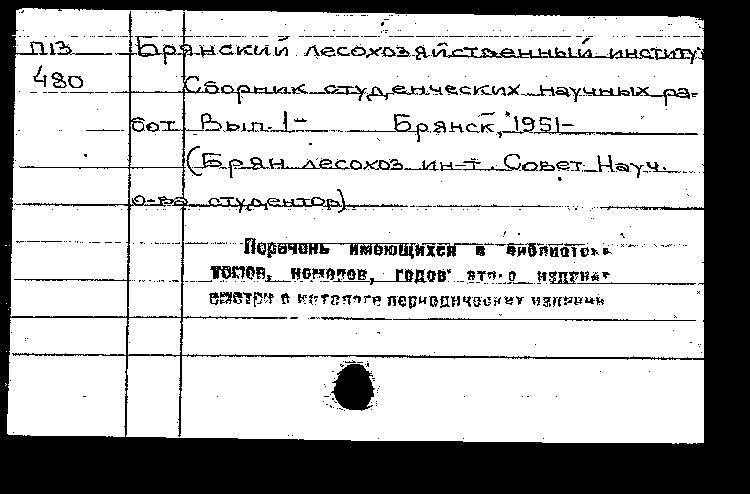 П13 Брянский лесохозяйственный институт
480 Сборник студенческих научных ра-
бот Вып. 1- Брянск, 1951-
(Брян лесохоз ин-т. Совет Науч.
о-ва студентов)
Перечень имеющихся в библиотеке
томов, номеров, годов этого издания
смотри в каталоге периодических изданий